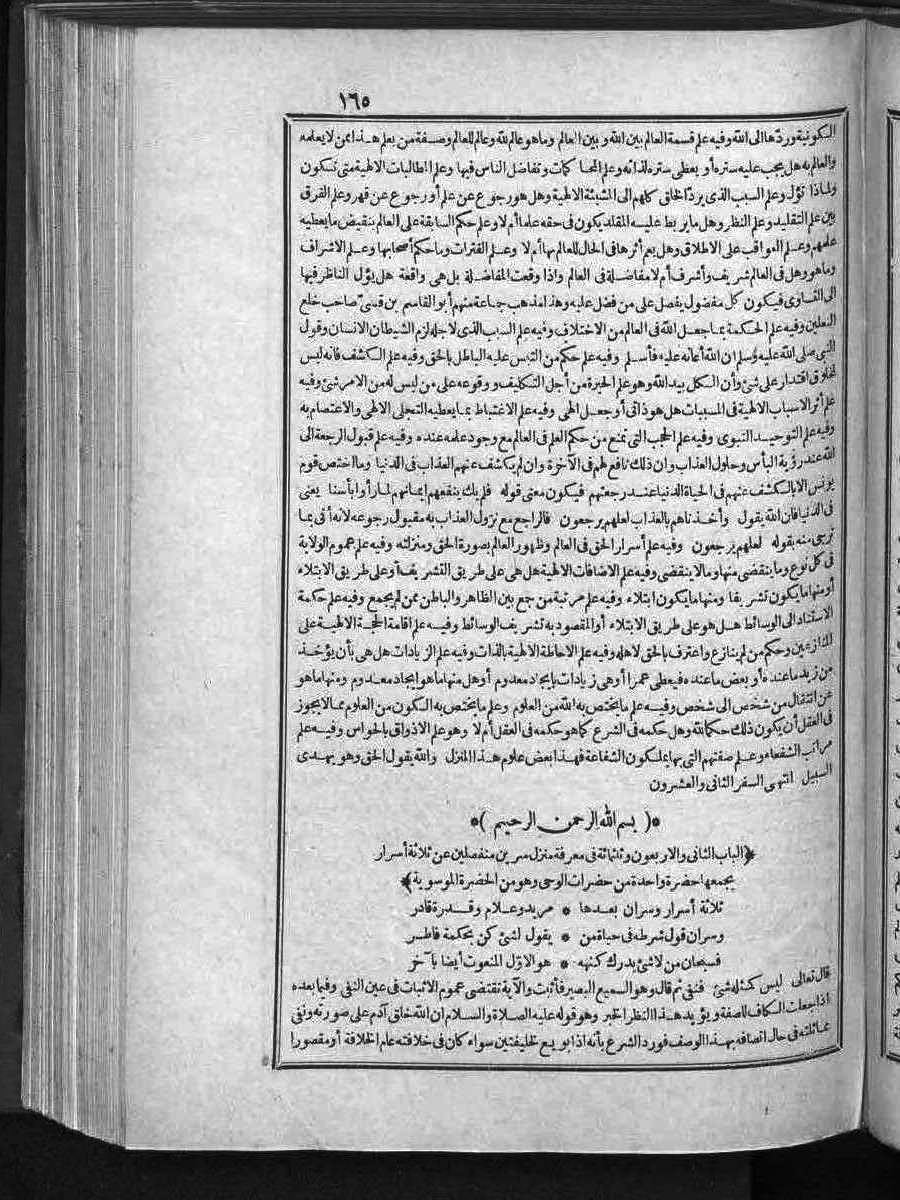 ١٦٥
الكونية وردّها الى الله وفيه علم قسمة العالم بين الله وبين العالم وما هو عالم لله وعالم للعالم وصفة من يعلم هذا ممن لا يعلمه
والعالم به هل يجب عليه ستره أو يعطى ستره لذاته وعلم المحاكمات وتفاضل الناس فيها وعلم المطالبات الالهية متى تكون
ولماذا تؤل وعلم السبب الذى يردّ الخلق كلهم الى المشيئة الالهية وهل هو رجوع عن علم أو رجوع عن قهر وعلم الفرق
بين علم التقليد وعلم النظر وهل ما يربط عليه المقلد يكون فى حقه علما أم لا وعلم حكم السابقة على العالم بنقيض ما يعطيه
علمهم وعلم العواقب على الاطلاق وهل يعم أثرها فى الحال للعالم بها أم لا وعلم الفترات وما حكم أصحابها وعلم الاشراف
وما هو وهل فى العالم شريف وأشرف أم لا مفاضلة فى العالم واذا وقعت المفاضلة بل هى واقعة هل يؤل الناظر فيها
الى التساوى فيكون كل مفضول يفضل على من فضل عليه وهذا مذهب جماعة منهم أبو القاسم بن قسىّ صاحب خلع
النعلين وفيه علم الحكمة بما جعل الله فى العالم من الاختلاف وفيه علم السبب الذى لاجله لزم الشيطان الانسان وقول
النبى صلى الله عليه وسلم ان الله أعانه عليه فأسلم وفيه علم حكم من التبس عليه الباطل بالحق وفيه علم الكشف فانه ليس
لمخلوق اقتدار على شئ وأن الكل بيد الله وهو علم الحيرة من أجل التكليف ووقوعه على من ليس له من الامر شئ وفيه
علم أثر الاسباب الالهية فى المسببات هل هو ذاتى أو جعل الهى وفيه علم الاغتباط بما يعطيه التجلى الالهى والاعتصام به
وفيه علم التوحيد النبوى وفيه علم الحجب التى تمنع من حكم العلم فى العالم مع وجود علمه عنده وفيه علم قبول الرجعة الى
الله عند رؤية البأس وحلول العذاب وان ذلك نافع لهم فى الآخرة وان لم يكشف عنهم العذاب فى الدنيا وما اختص قوم
يونس الا بالكشف عنهم فى الحياة الدنيا عند رجعتهم فيكون معنى قوله فلم يك ينفعهم ايمانهم لما رأوا بأسنا يعنى
فى الدنيا فان الله يقول وأخذناهم بالعذاب لعلهم يرجعون فالراجع مع نزول العذاب به مقبول رجوعه لانه أتى بما
ترجى منه بقوله لعلهم يرجعون وفيه علم أسرار الحق فى العالم وظهور العالم بصورة الحق ومنزلته وفيه علم عموم الولاية
فى كل نوع وما ينقضى منها وما لا ينقضى وفيه علم الاضافات الالهية هل هى على طريق التشريف أو على طريق الابتلاء
أو منها ما يكون تشريفا ومنها ما يكون ابتلاء وفيه علم مرتبة من جمع بين الظاهر والباطن ممن لم يجمع وفيه علم حكمة
الاستناد الى الوسائط هل هو على طريق الابتلاء أو المقصود به تشريف الوسائط وفيه علم اقامة الحجة الالهية على
المنازعين وحكم من لم ينازع واعترف بالحق لاهله وفيه علم الاحاطة الالهية بالذات وفيه علم الزيادات هل هى بأن يؤخذ
من زيد ما عنده أو بعض ما عنده فيعطى عمرا أو هى زيادات بايجاد معدوم أو هل منها ما هو ايجاد معدوم ومنها ما هو
عن انتقال من شخص الى شخص وفيه علم ما يختص به الله من العلوم وعلم ما يختص به الكون من العلوم مما لا يجوز
فى العقل أن يكون ذلك حكما لله وهل حكمه فى الشرع كما هو حكمه فى العقل أم لا وهو علم الاذواق بالحواس وفيه علم
مراتب الشفعاء وعلم صفتهم التى بها يملكون الشفاعة فهذا بعض علوم هذا المنزل والله يقول الحق وهو يهدى
السبيل انتهى السفر الثانى والعشرون
*( بسم الله الرحمن الرحيم )*
﴿الباب الثانى والاربعون وثلثمائة فى معرفة منزل سرين منفصلين عن ثلاثة أسرار
يجمعها حضرة واحدة من حضرات الوحى وهو من الحضرة الموسوية﴾
ثلاثة أسرار وسران بعدها * مريد وعلام وقدرة قادر
وسران قول شرطه فى حياة من * يقول لشئ كن بحكمة فاطر
فسبحان من لا شئ يدرك كنهه * هو الاول المنعوت أيضا بآخر
قال تعالى ليس كمثله شئ فنفى ثم قال وهو السميع البصير فأثبت والآية تقتضى عموم الاثبات فى عين النفى وفيما بعده
اذا جعلت الكاف للصفة ويؤيد هذا النظر الخبر وهو قوله عليه الصلاة والسلام ان الله خلق آدم على صورته ونفى
مماثلته فى حال اتصافه بهذا الوصف فورد الشرع بأنه اذا بويع لخليفتين سواء كان فى خلافته عام الخلافة أو مقصورا